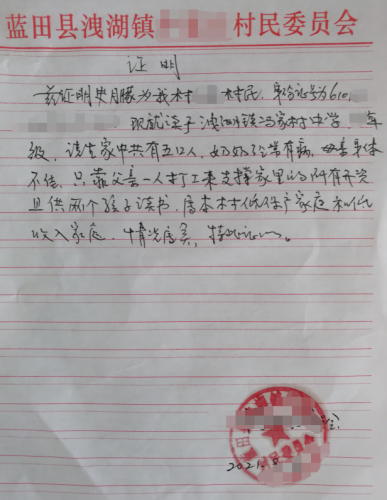 蓝田县洩湖镇 村民委员会
证明
兹证明史月朦为我村 村民,身份证号为610
现就读于洩湖镇冯家村中学 年
级,该生家中共有五口人,奶奶经常有病,母亲身体
不佳,只靠父亲一人打工来支撑家里的所有开资
且供两个孩子读书,属本村低保户家庭和低
收入家庭,情况属实,特此证明。
2021.